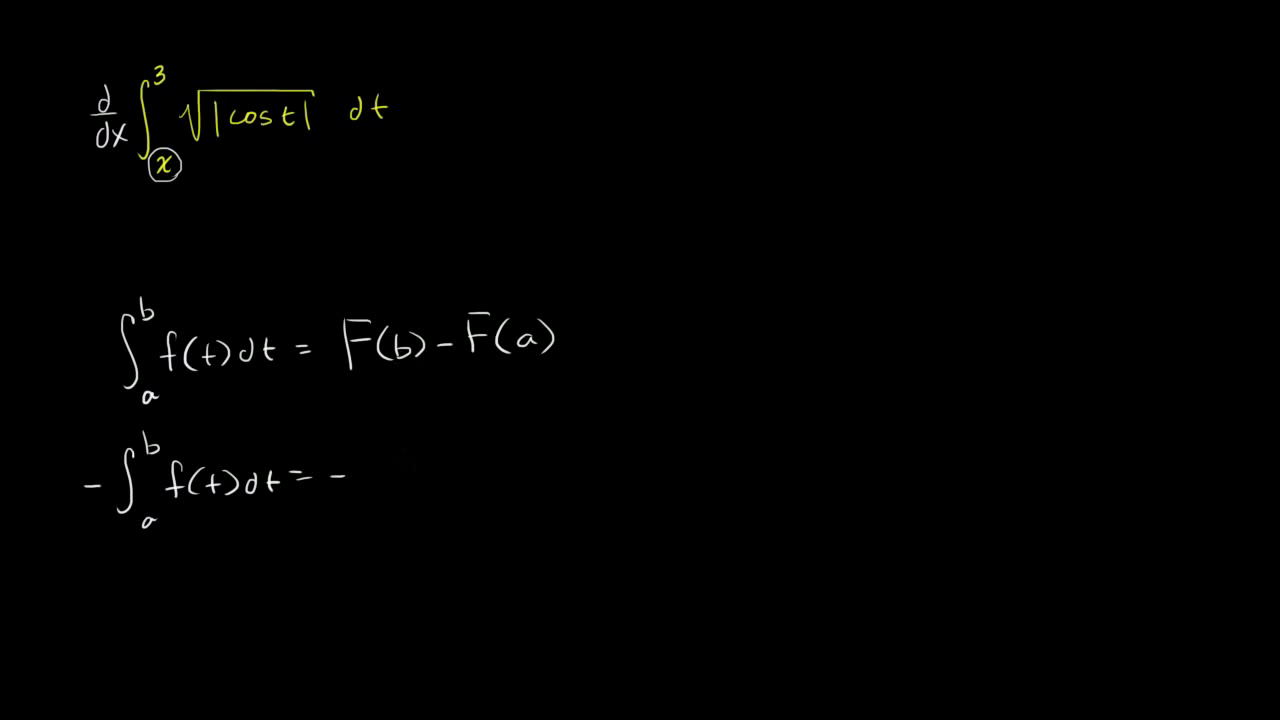 d/dx ∫_x^3 √|cos t| dt
∫_a^b f(t)dt = F(b) - F(a)
- ∫_a^b f(t)dt = -